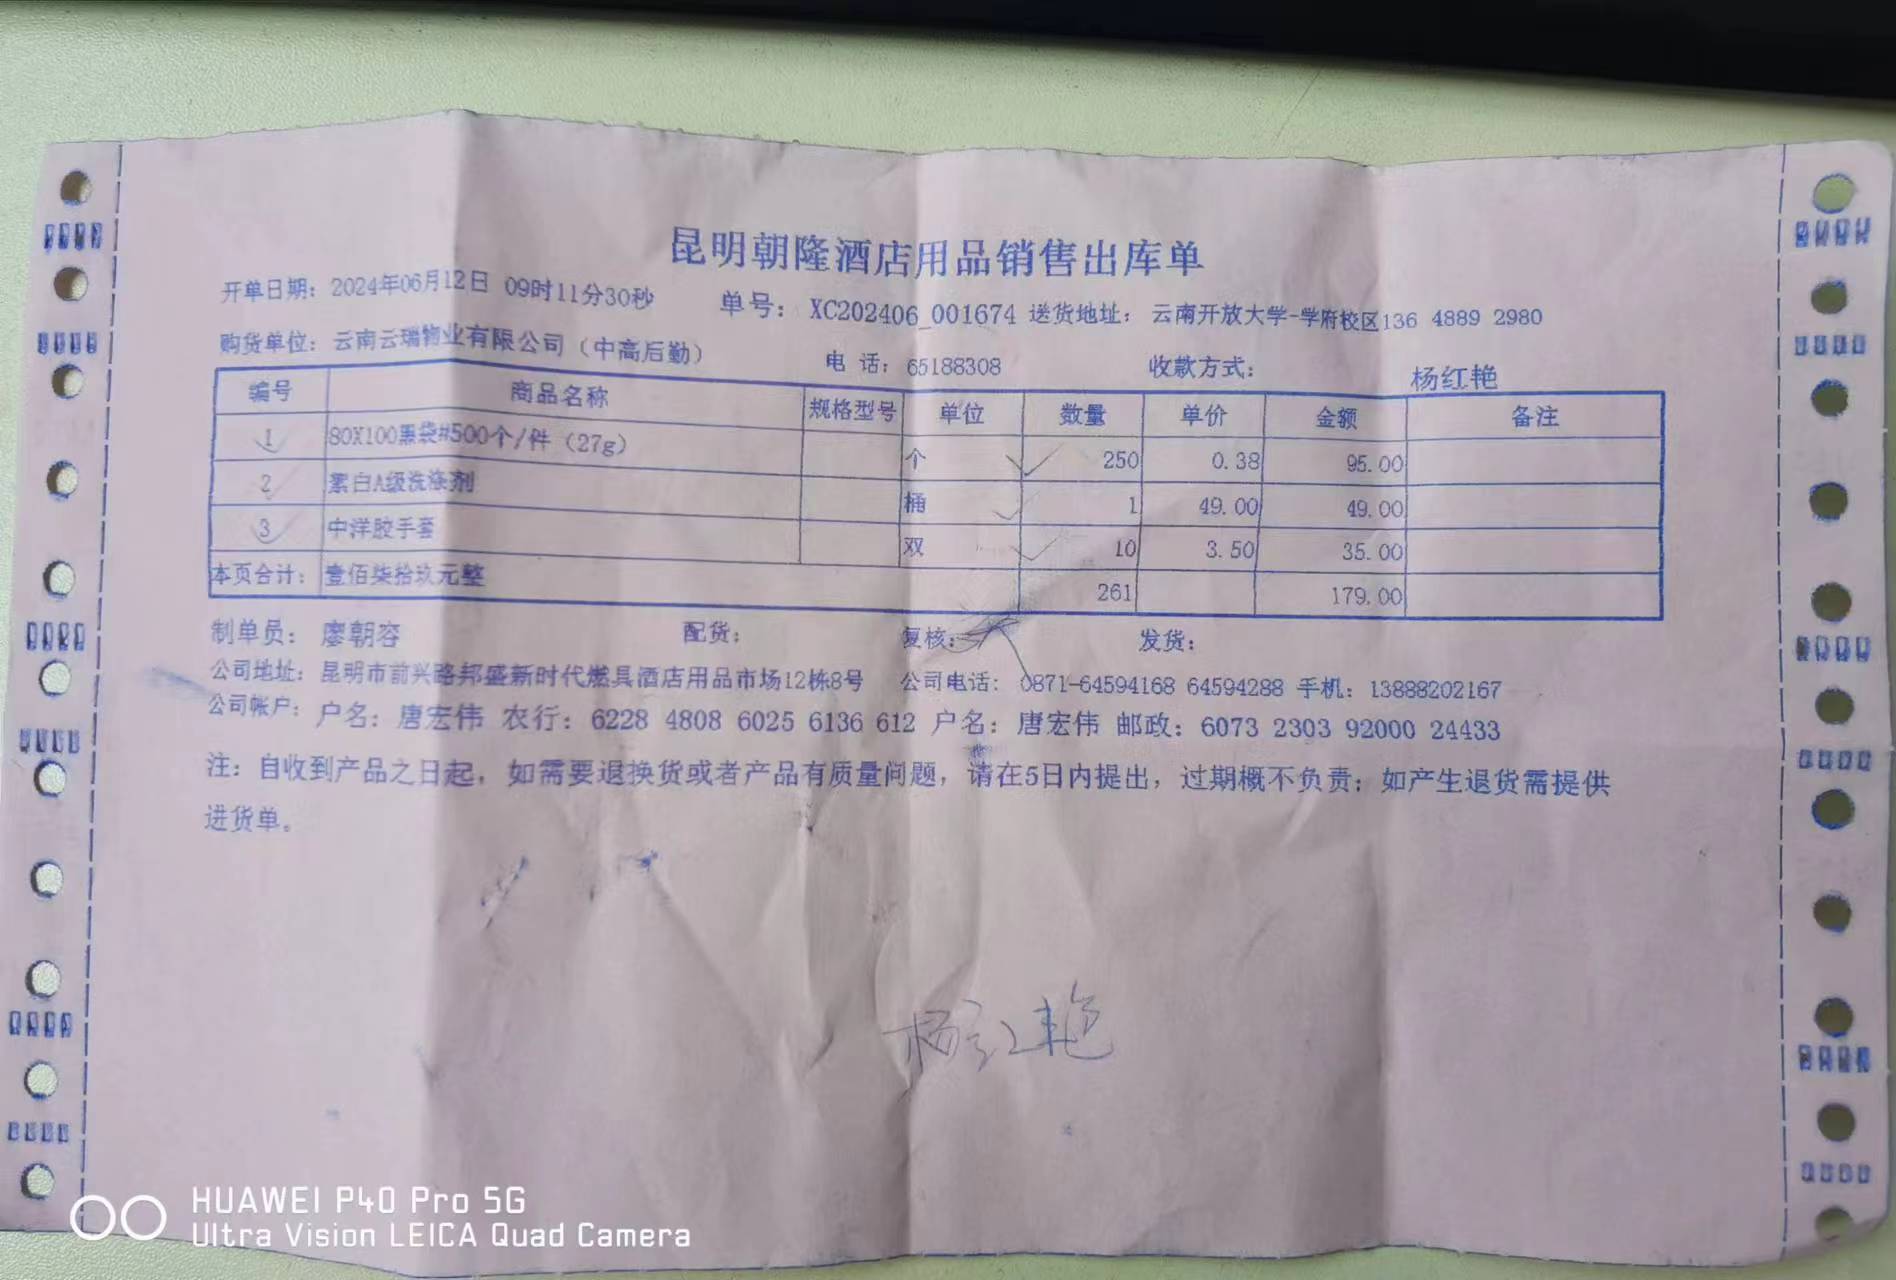 昆明朝隆酒店用品销售出库单
开单日期：2024年06月12日 09时11分30秒 单号：XC202406_001674 送货地址：云南开放大学-学府校区136 4889 2980
购货单位：云南云瑞物业有限公司（中高后勤） 电 话：65188308 收款方式： 杨红艳
编号 商品名称 规格型号 单位 数量 单价 金额 备注
1 80X100黑袋#500个/件（27g） 个 250 0.38 95.00
2 絮白A级洗涤剂 桶 1 49.00 49.00
3 中洋胶手套 双 10 3.50 35.00
本页合计：壹佰柒拾玖元整 261 179.00
制单员：廖朝容 配货： 复核： 发货：
公司地址：昆明市前兴路邦盛新时代燃具酒店用品市场12栋8号 公司电话：0871-64594168 64594288 手机：13888202167
公司帐户：户名：唐宏伟 农行：6228 4808 6025 6136 612 户名：唐宏伟 邮政：6073 2303 92000 24433
注：自收到产品之日起，如需要退换货或者产品有质量问题，请在5日内提出，过期概不负责；如产生退货需提供
进货单。
杨红艳
HUAWEI P40 Pro 5G
Ultra Vision LEICA Quad Camera